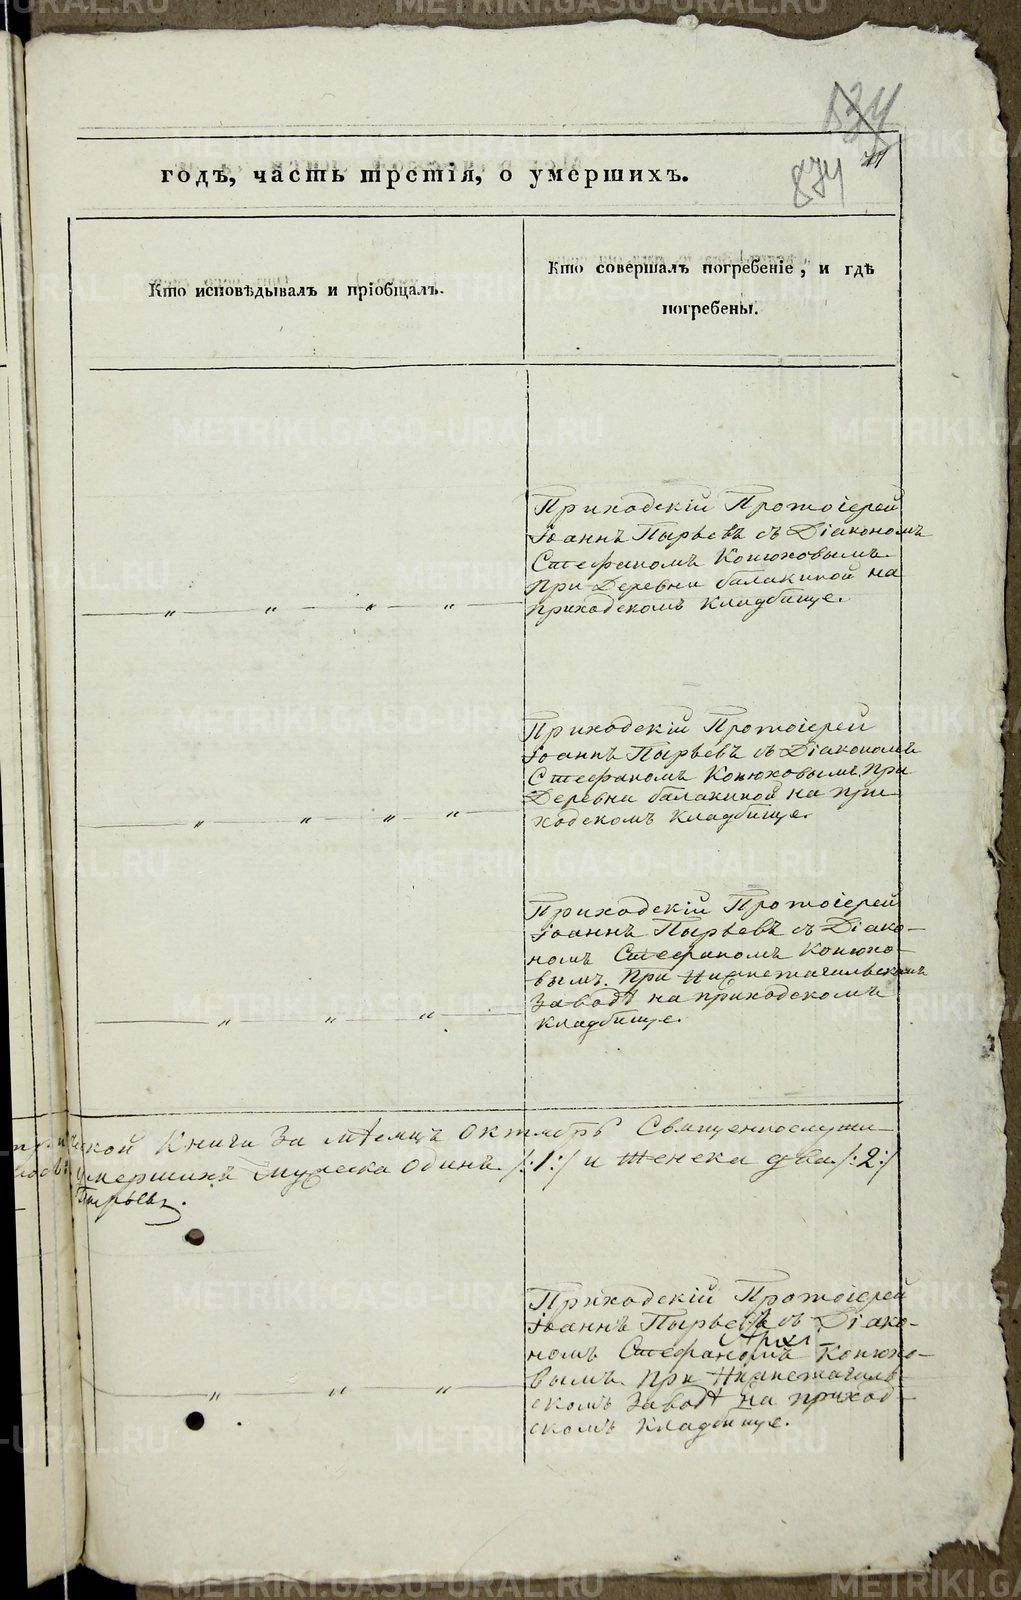 874
годъ, часть третія, о умершихъ.
Кто исповѣдывалъ и пріобщалъ.
Кто совершалъ погребеніе, и гдѣ
погребены.
Приходскій Протоіерей
Іоаннъ Пырьевъ съ Діакономъ
Стефаномъ Конюховымъ
при Деревни балакиной на
приходскомъ кладбище.
Приходскій Протоіерей
Іоаннъ Пырьевъ съ Діакономъ
Стефаномъ Конюховымъ при
Деревни балакиной на при
ходскомъ кладбище.
Приходскій Протоіерей
Іоаннъ Пырьевъ съ Діако-
номъ Стефаномъ Конюхо-
вымъ. При Нижнетагильскомъ
Заводѣ на приходскомъ
кладбище.
Книги За мѣсяцъ октябрь Священнослужи-
умершихъ мужеска одинъ /:1:/ и женска два /:2:/
Пырьевъ.
Приходскій Протоіерей
Іоаннъ Пырьевъ съ Діако-
номъ Стефаномъ Конюхо-
вымъ. При Нижнетагиль-
скомъ Заводѣ на приход-
скомъ кладбище.
METRIKI.GASO-URAL.RU